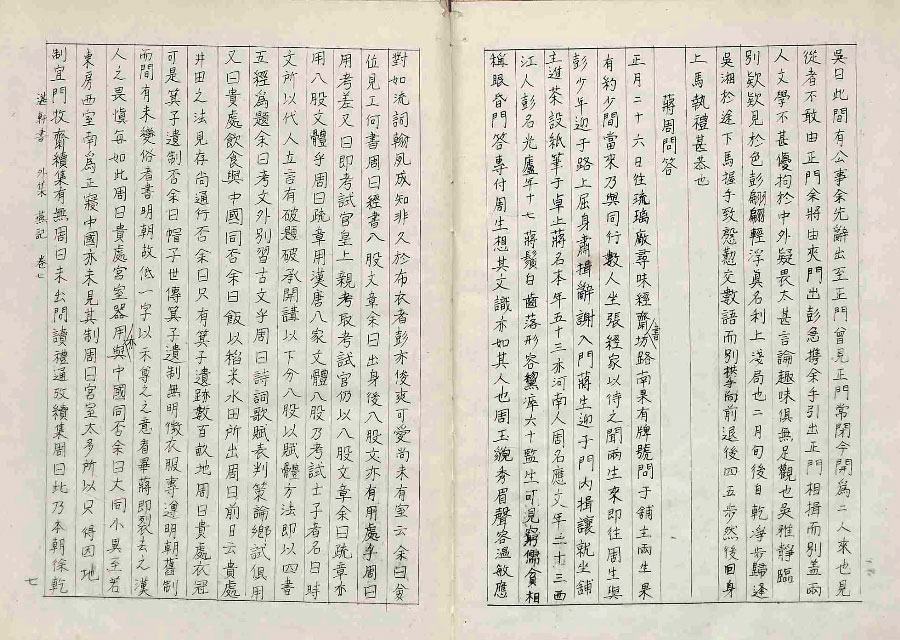 吳曰此間有公事余先辭出至正門曾見正門常閉今開為二人來也見
從者不敢由正門余將由夾門出彭急携余手引出正門相揖而別盖兩
人文學不甚優拘於中外疑畏太甚言論趣味俱無足觀也吳雅靜臨
別歎歎見於色彭翩翩輕浮眞名利上淺局也二月旬後自乾淨步歸逢
吳湘於途下馬握手致慇懃交數語而別拱手向前退後四五步然後回身
上馬執禮甚恭也
蔣周問答
正月二十六日往琉璃廠尋味經齋書坊路南果有牌號問于舖主兩生果
有約少間當來乃與同行數人坐張經家以待之聞兩生來即往周生與
彭少年迎于路上屈身肅揖辭謝入門蔣生迎于門內揖讓就坐舖
主進茶設紙筆于卓上蔣名本年五十三亦河南人周名應文年二十三西
江人彭名光廬年十七蔣鬚白齒落形容黧瘁六十監生可見窮儒貧相
稱眼昏問答專付周生想其文識亦如其人也周玉貌秀眉聲容溫敏應
對如流詞翰夙成知非久於布衣者彭亦俊爽可愛尚未有室云余曰貧
位見工何書周曰經書八股文章余曰出身後八股文亦有用處乎周曰
用考差又曰即考試官皇上親考取考試官仍以八股文章余曰疏章亦
用八股文體乎周曰疏章用漢唐八家文體八股乃考試士子者名曰時
文所以代人立言有破題破承開講以下分八股以賦體方法即以四書
五經為題余曰考文外別習古文乎周曰詩詞歌賦表判策論鄉試俱用
又曰貴處飲食與中國同否余曰飯以稻米水田所出周曰前日云貴處
井田之法見存尚通行否余曰只有箕子遺跡數百畝地周曰貴處衣冠
可是箕子遺制否余曰帽子世傳箕子遺制無明徵衣服專遵明朝舊制
而間有未變俗者書明朝故低一字以示尊之之意者畢蔣即裂去之漢
人之畏愼每如此周曰貴處宮室器用與中國同否余曰大同小異至若
東房西室南為正寢中國亦未見其制周曰宮室太多所以只得因地
制宜門牧齋續集有無周曰未出問讀禮通攷續集周曰此乃本朝徐乾
湛軒書 外集 燕記 卷七
七